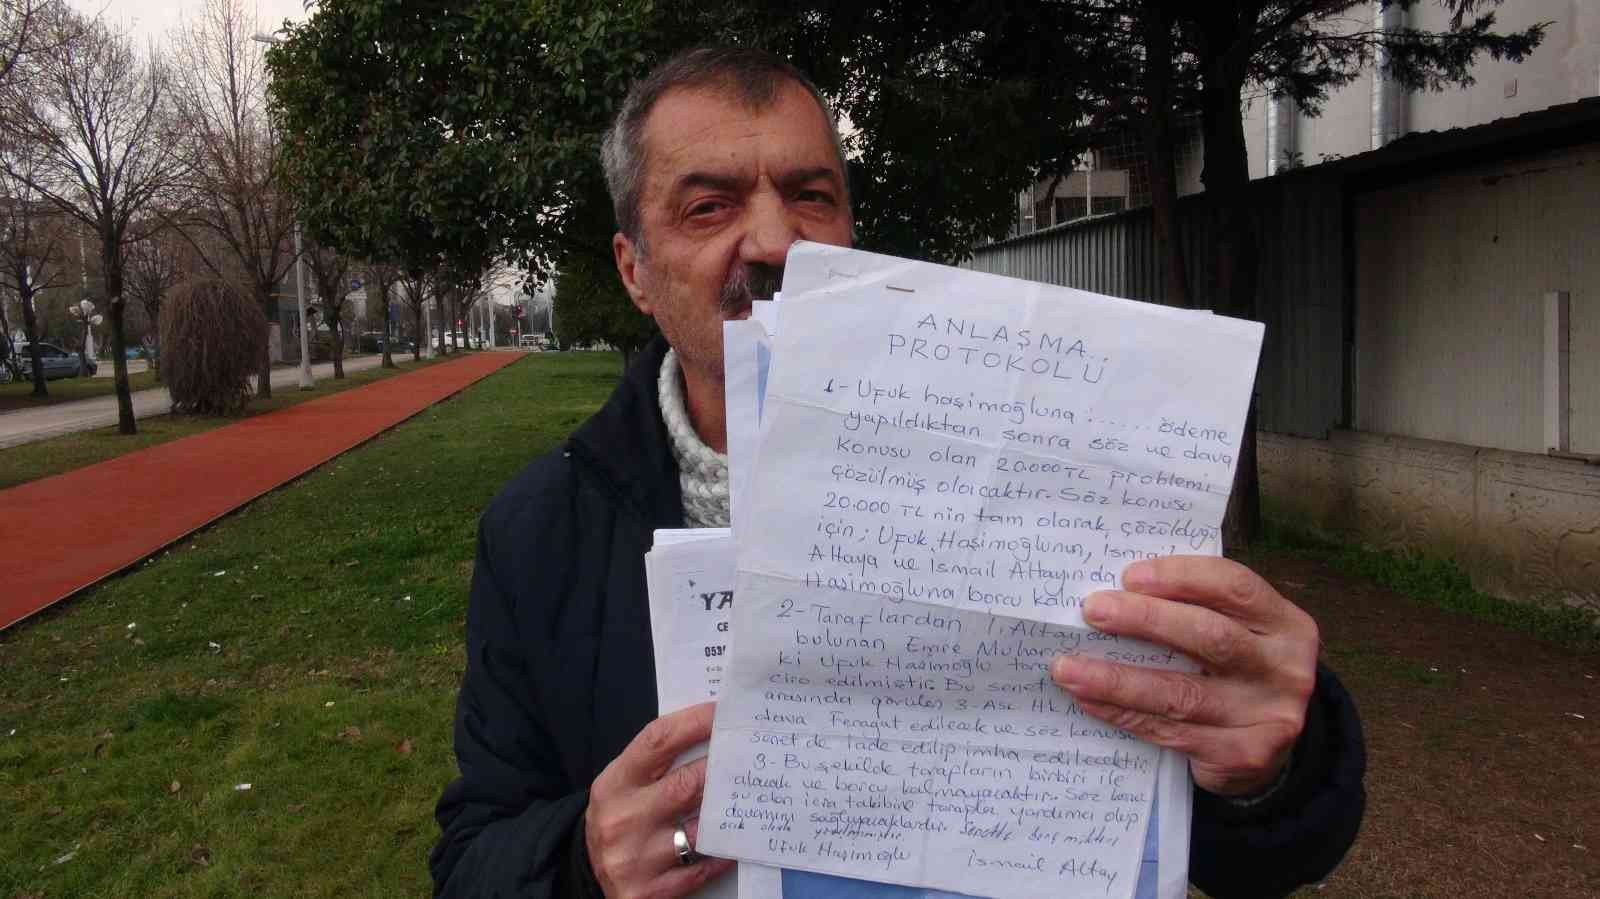 ANLAŞMA
PROTOKOLÜ
1- Ufuk haşimoğluna:...... ödeme
yapıldıktan sonra söz ve dava
konusu olan 20.000 TL problemi
çözülmüş olacaktır. Söz konusu
20.000 TL nin tam olarak, çözüldüğü
için; Ufuk Haşimoğlunun, İsmail
Altaya ve İsmail Altayında
Haşimoğluna borcu kalm
2- Taraflardan İ. Altayda
bulunan Emre Muharrem senet
ki Ufuk Haşimoğlu tara
ciro edilmiştir. Bu senet
arasında görülen 3- Asc Hk M
dava Feragat edilecek ve söz konusu
senet de iade edilip imha edilecektir.
3- Bu şekilde tarafların birbiri ile
alacak ve borcu kalmayacaktır. Söz konu
su olan icra takibine taraflar yardımcı olup
devamını sağlayacaklardır. Senette borç miktarı
açık olarak yazılmamıştır
Ufuk Haşimoğlu İsmail Altay
YA
CE
053